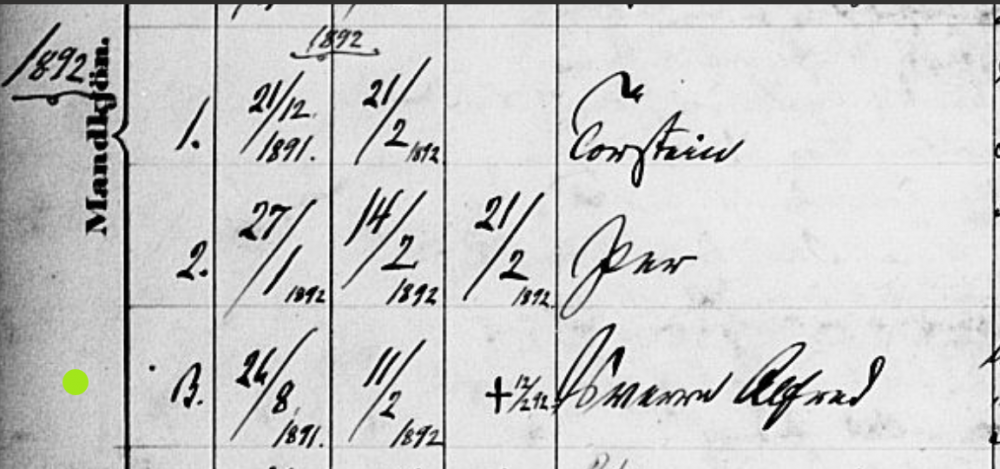 1892
Mandkjön.
1892
1. 21/12 1891. 21/2 1892 Torstein
2. 27/1 1892 14/2 1892 21/2 1892 Per
3. 26/8 1891. 11/2 1892 + 12/2 92 Sverre Alfred